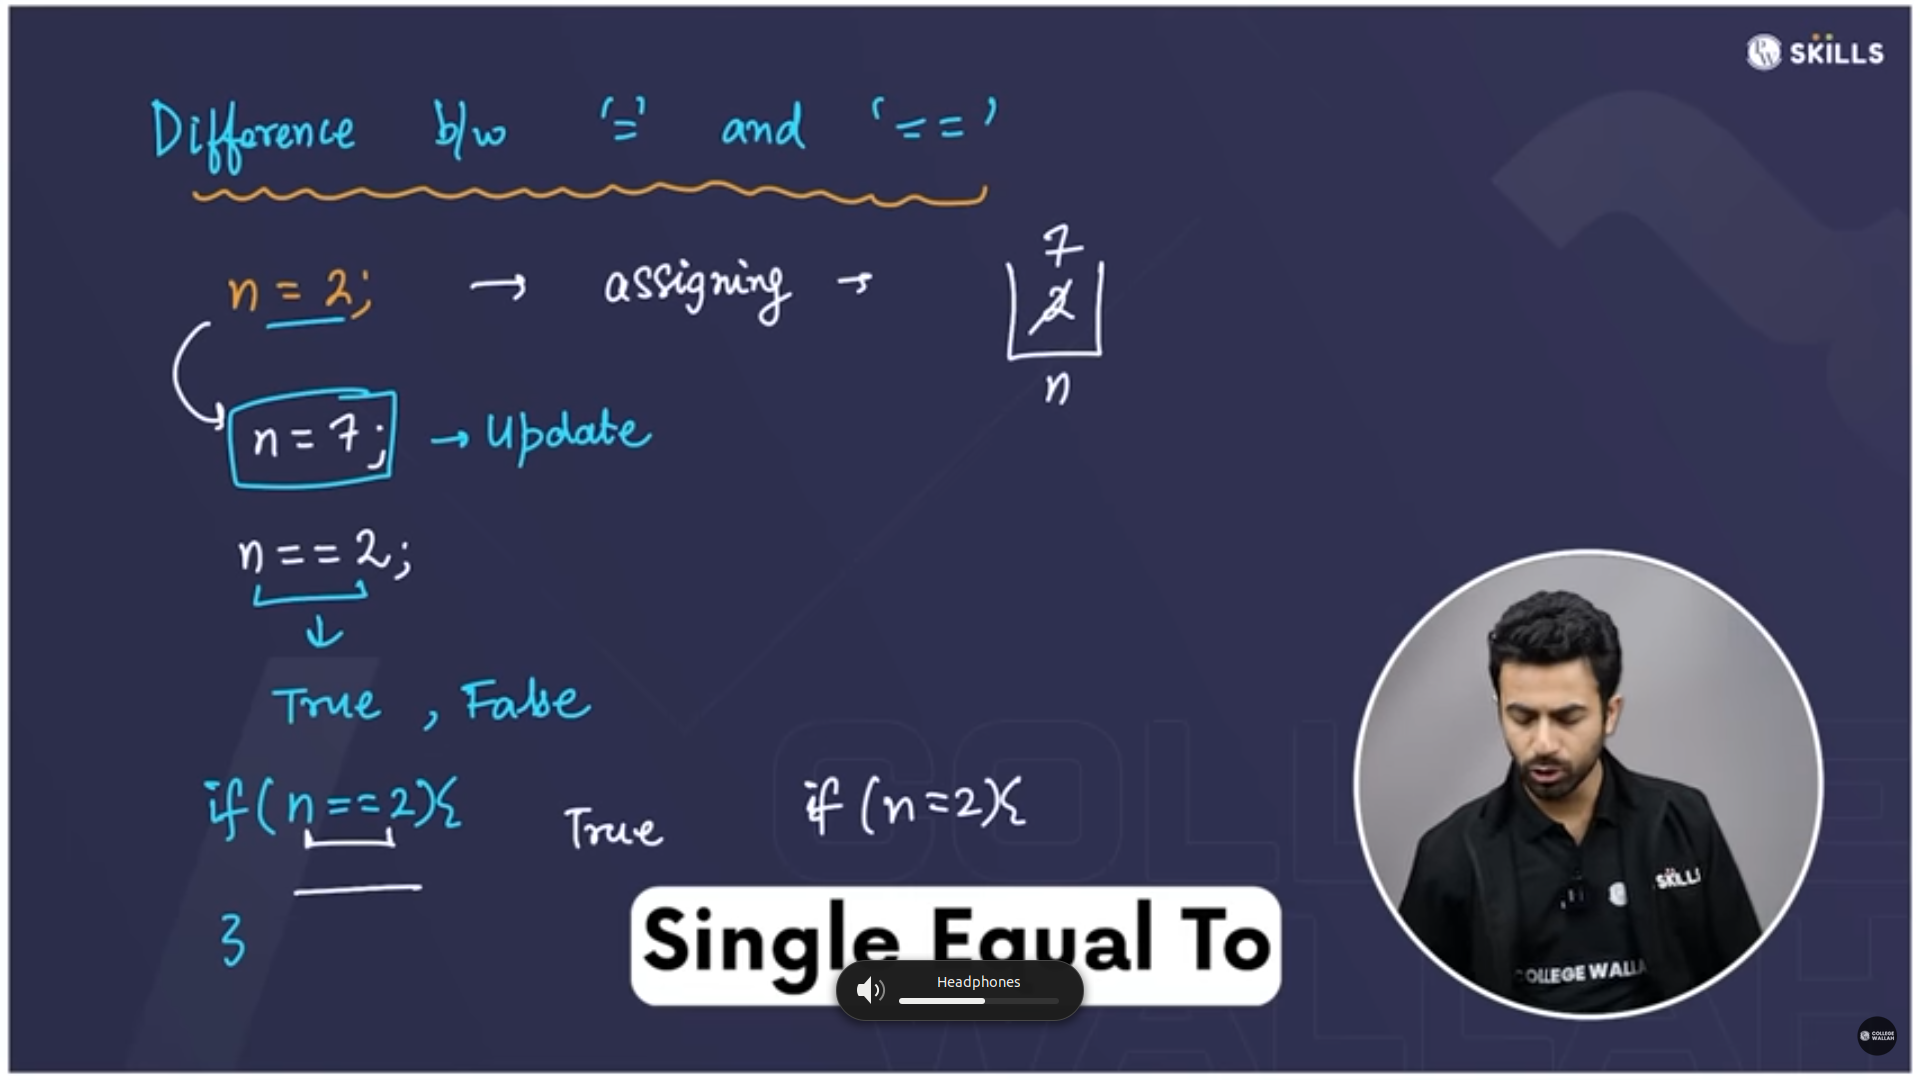 SKILLS
Difference b/w '=' and '=='
n = 2; → assigning →
7
2
n
n = 7; → Update
n == 2;
↓
True , False
if (n==2){ True if (n=2){
}
Single Equal To
Headphones
SKILLS
COLLEGE WALLA
COLLEGE
WALLAH